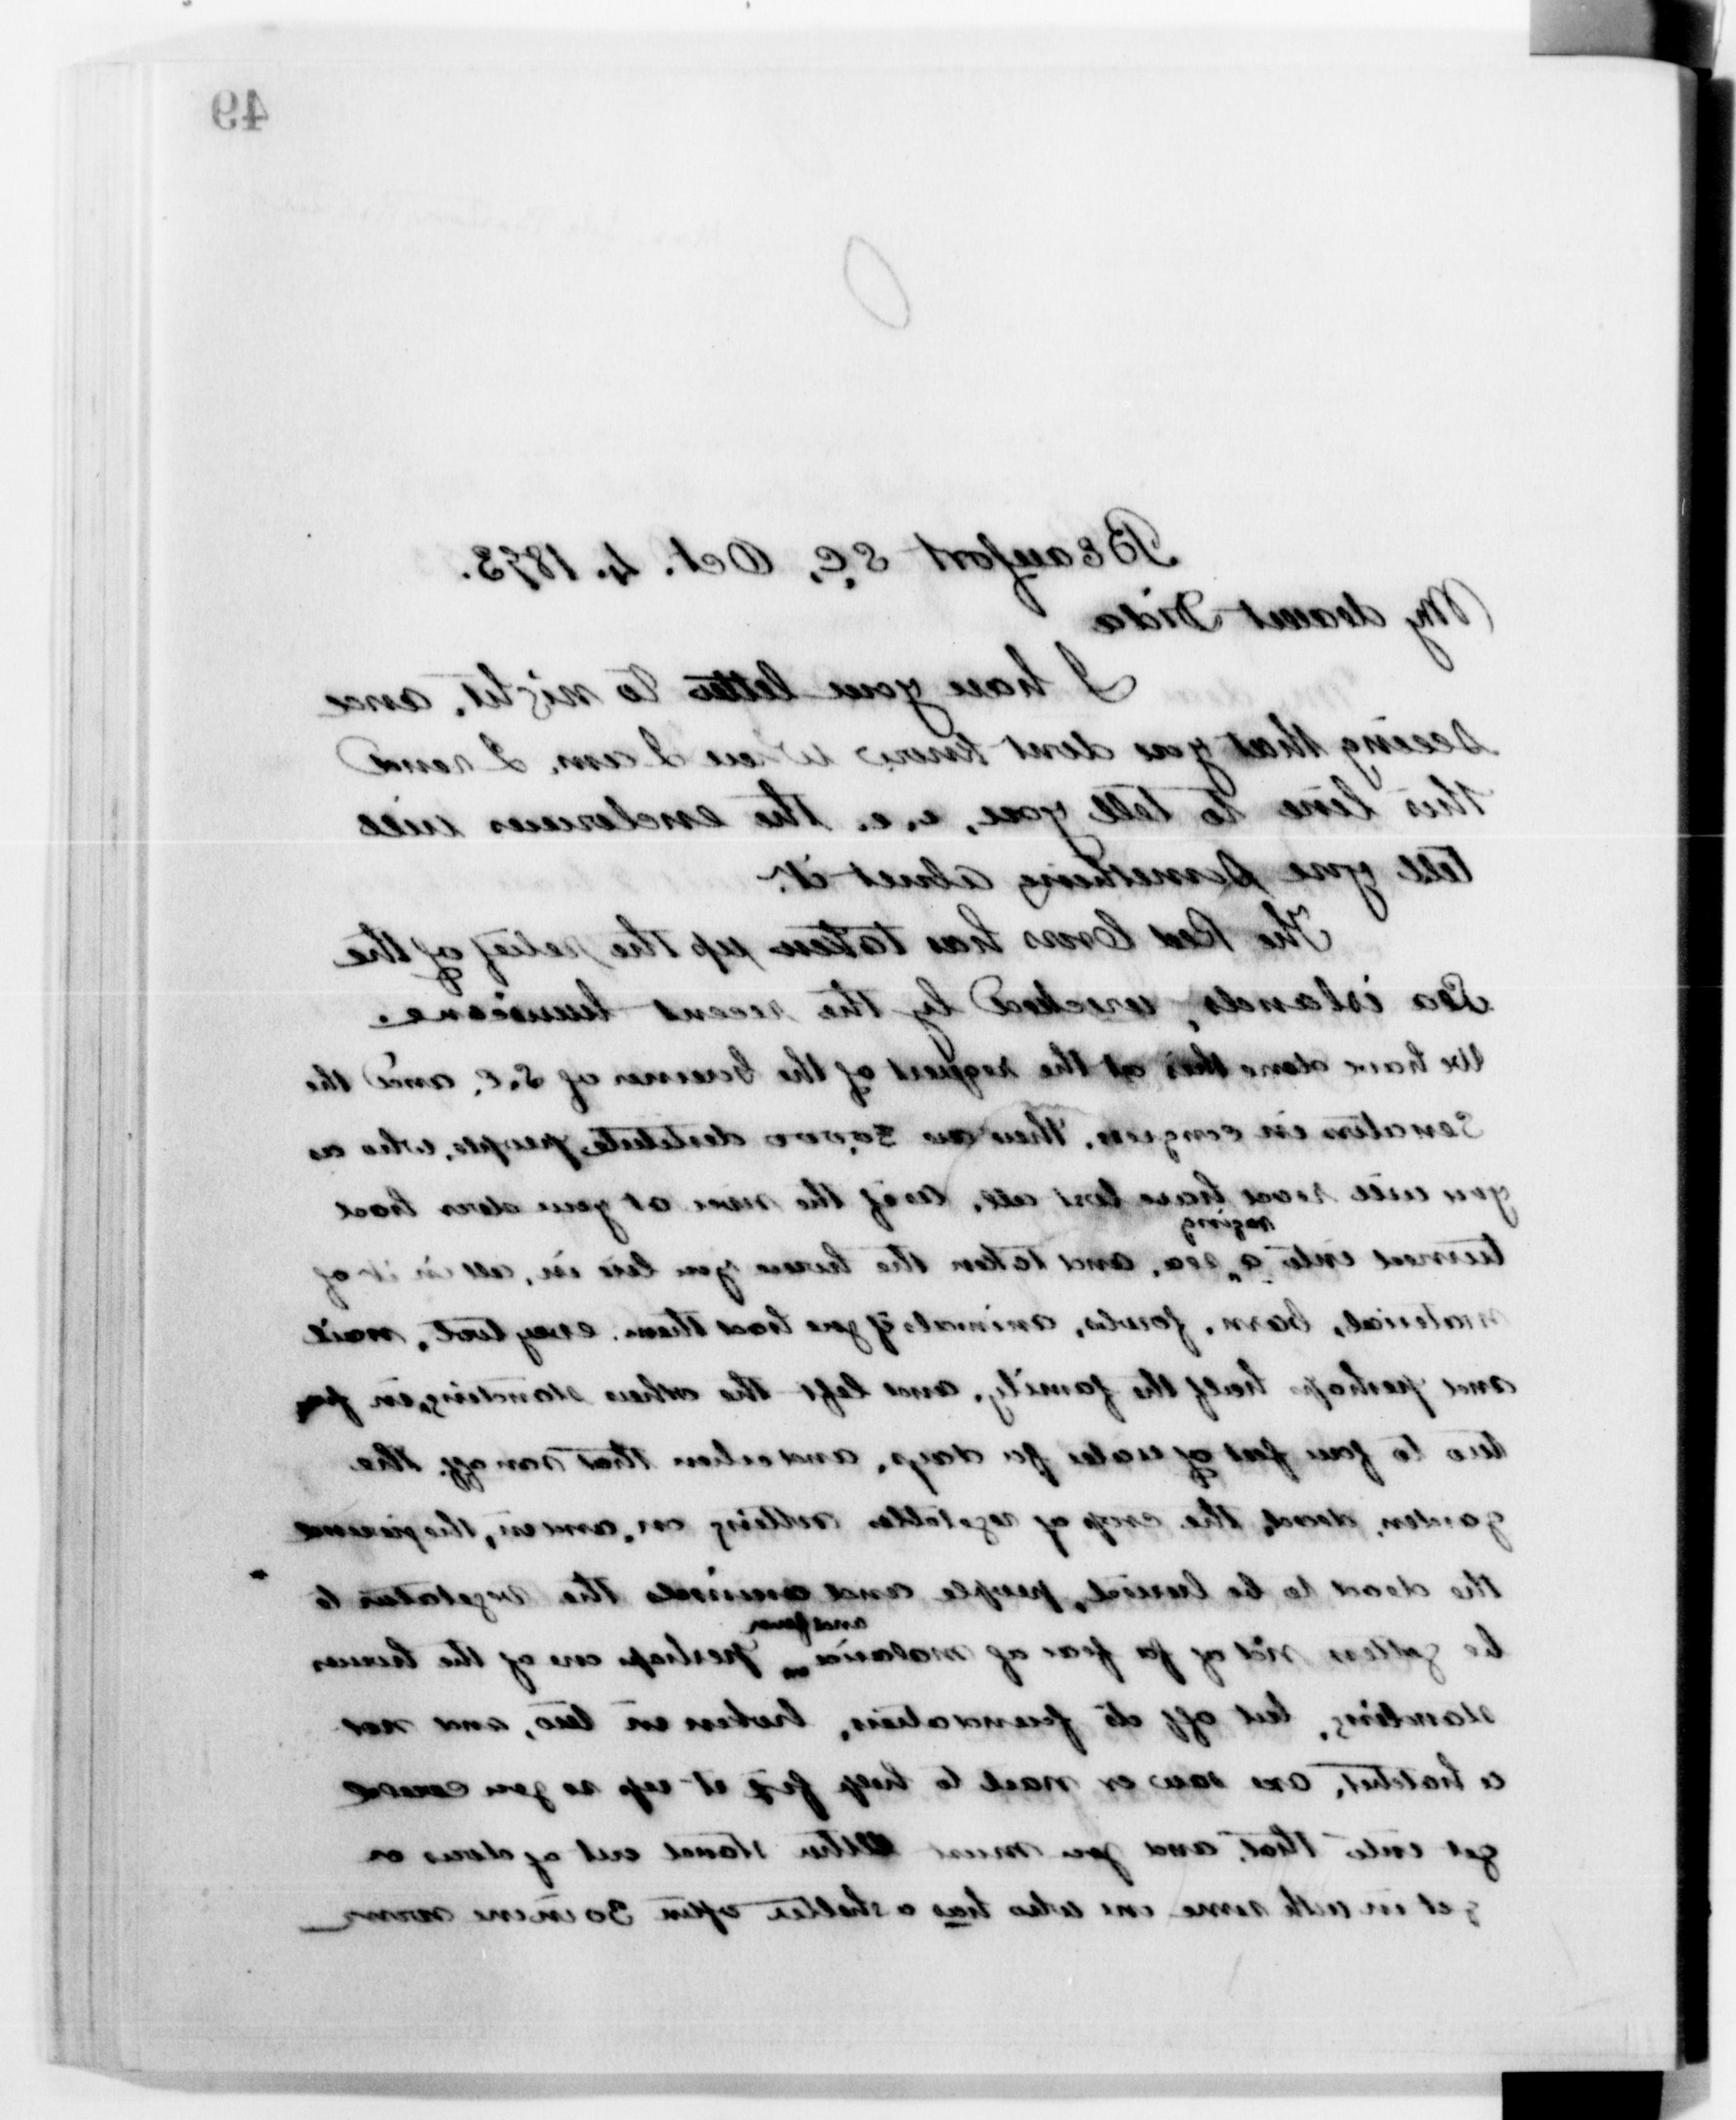 49
Beaufort S.C, Oct. 4. 1893.
My dearest Dida
I have your letter to night, and
seeing that you dont know where I am, I send
this line to tell you, i.e. the enclosures will
tell you something about it.
The Red Cross has taken up the relief of the
Sea islands, wrecked by the recent hurricane.
We have done this at the request of the Governor of S.C. and the
Senators in congress. There are 30,000 destitute people, who as
you will read have lost all, as if the river at your door had
turned into a raging sea, and taken the house you live in, all in it of
material, barn, fowls, animals if you had them. every tool, nail
and perhaps half the family, and left the others standing, in from
two to four feet of water for days, and when that ran off, the
garden, dead, the crop of vegetables rotting on, and in, the ground
the dead to be buried, people and animals the vegetation to
be gotten rid of for fear of malaria and fever perhaps one of the houses
standing, but off its foundation, broken in two, and not
a hatchet, axe saw or nail to help fix it up so you could
get into that, and you must either stand out of doors or
get in with some one who has a shelter often 30 in one room